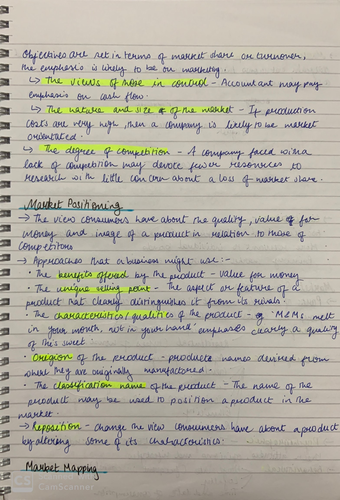 Objectives are set in terms of market share or turnover,
the emphasis is likely to be on marketing.
↳ The views of those in control - Accountant may pay
emphasis on cash flow.
↳ The nature and size of the market - If production
costs are very high, then a company is likely to be market
orientated.
↳ The degree of competition - A company faced with a
lack of competition may devote fewer resources to
research with little concern about a loss of market share.
Market Positioning
→ The view consumers have about the quality, value for
money and image of a product in relation to those of
competitors
→ Approaches that a business might use:-
• The benefits offered by the product - value for money
• The unique selling point - The aspect or feature of a
product that clearly distinguishes it from its rivals.
• The characteristics/qualities of the product - eg M&Ms melt
in your mouth, not in your hand emphasises clearly a quality
of this sweet.
• Origion of the product - products names derived from
where they are originally manufactured.
• The classification name of the product - The name of the
product may be used to position a product in the
market.
→ Reposition - change the view consumers have about a product
by altering some of its characteristics.
Market Mapping
CS CamScanner